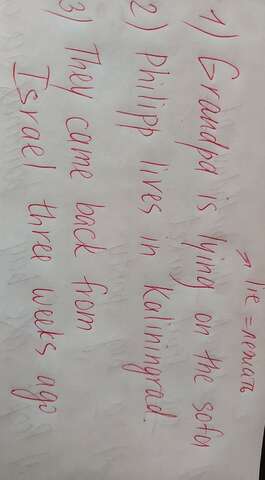 lie = лежать
1) Grandpa is lying on the sofa
2) Philipp lives in Kaliningrad.
3) They came back from
Israel three weeks ago